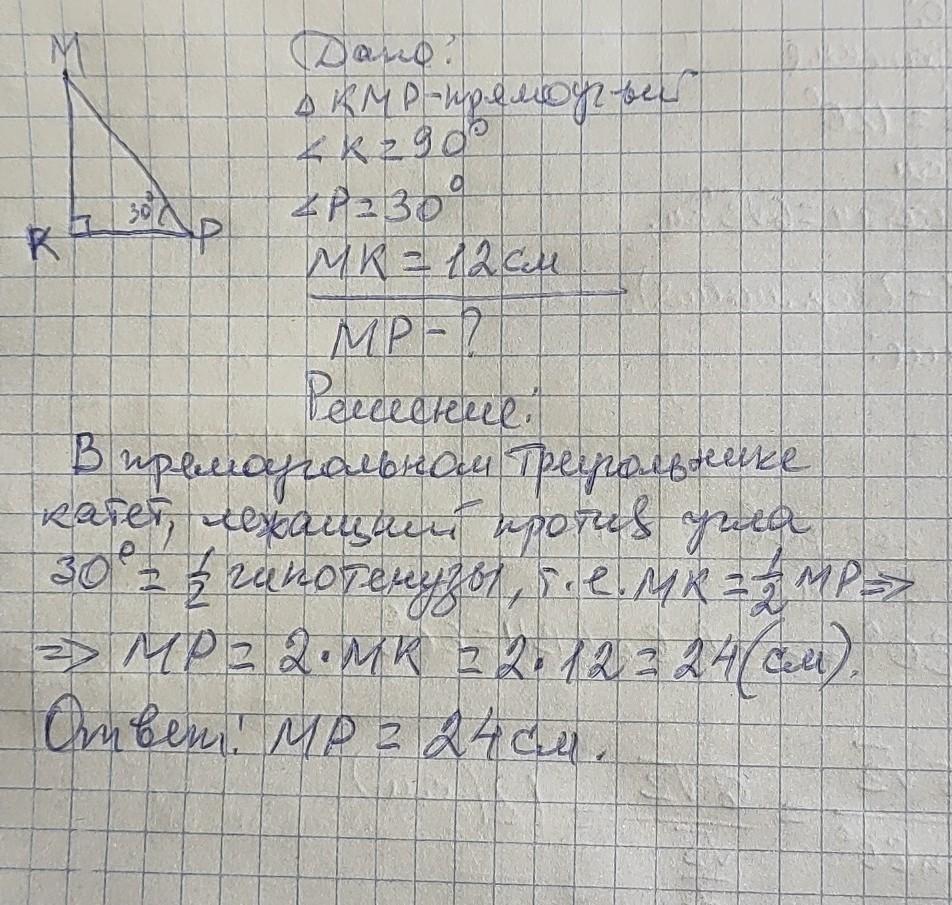 M
30°
K
P
Дано:
△ KMP-прямоуг-ый
∠K=90°
∠P=30°
MK=12см
MP-?
Решение:
В прямоугольном треугольнике
катет, лежащий против угла
30°=1/2 гипотенузы, т.е. MK=1/2 MP=>
=> MP=2·MK=2·12=24(см).
Ответ: MP=24см.